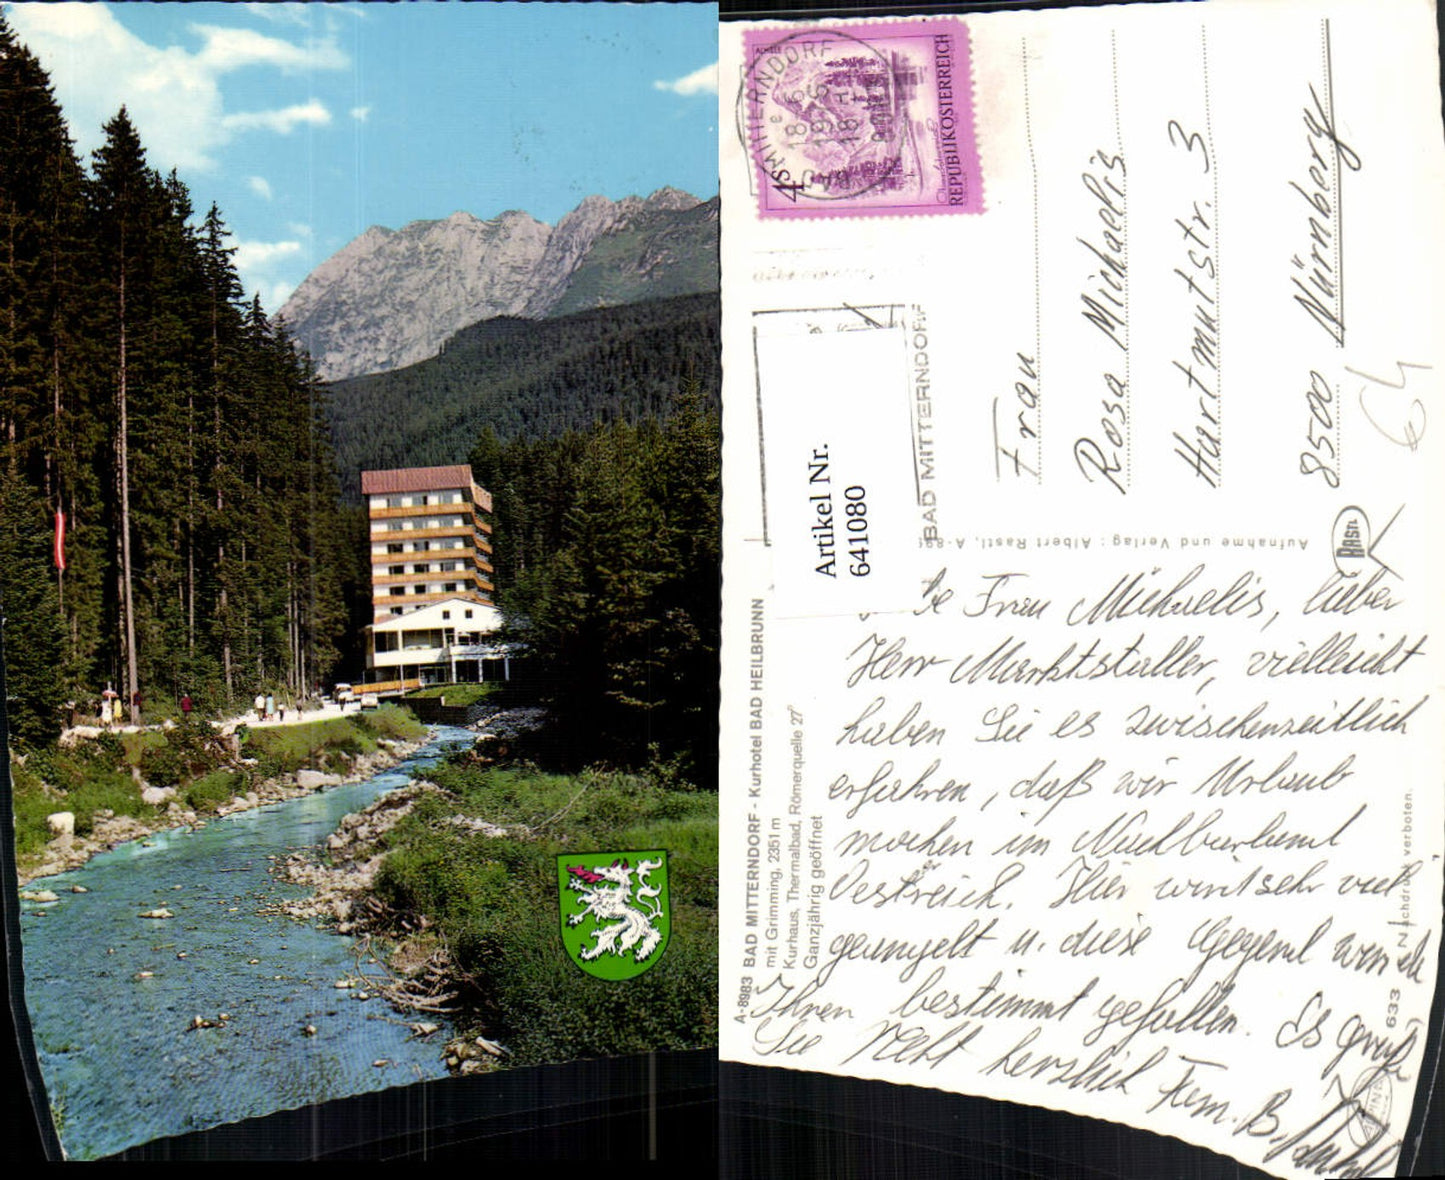 BAD MITTERNDORF
18. 6
1976
18
4S
REPUBLIK ÖSTERREICH
BAD MITTERNDORF
Artikel Nr.
641080
Frau
Rosa Michaelis
Hartmutstr. 3
8500 Nürnberg
64
RASTL
Aufnahme und Verlag: Albert Rastl, A-89
A-8983 BAD MITTERNDORF - Kurhotel BAD HEILBRUNN
mit Grimming, 2351 m
Kurhaus, Thermalbad, Römerquelle 27°
Ganzjährig geöffnet
633 Nachdruck verboten.
Frau Michaelis, lieber
Herr Marktstaller, vielleicht
haben Sie es zwischenzeitlich
erfahren, daß wir Urlaub
machen im Nachbarland
Oesterreich. Hier wird sehr viel
geangelt u. diese Gegend würde
Ihnen bestimmt gefallen. Es grüßt
Sie recht herzlich Fam. B.